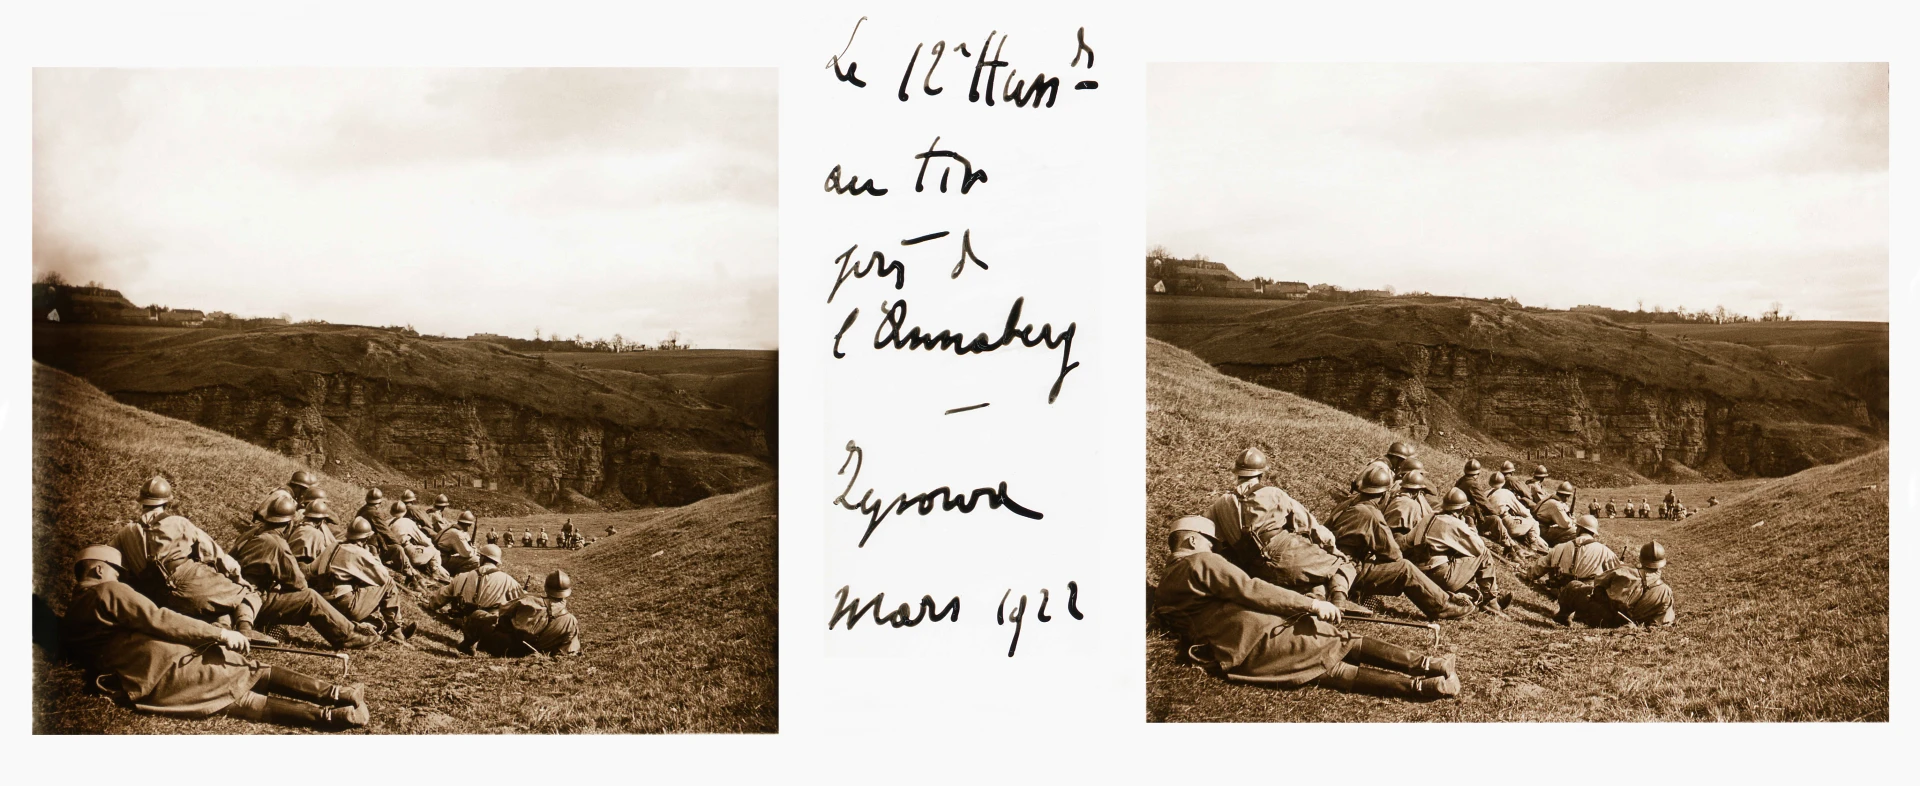 Le 12e Huss ds
au tir
près de
l'Annaberg
—
Zyrowa
Mars 1922